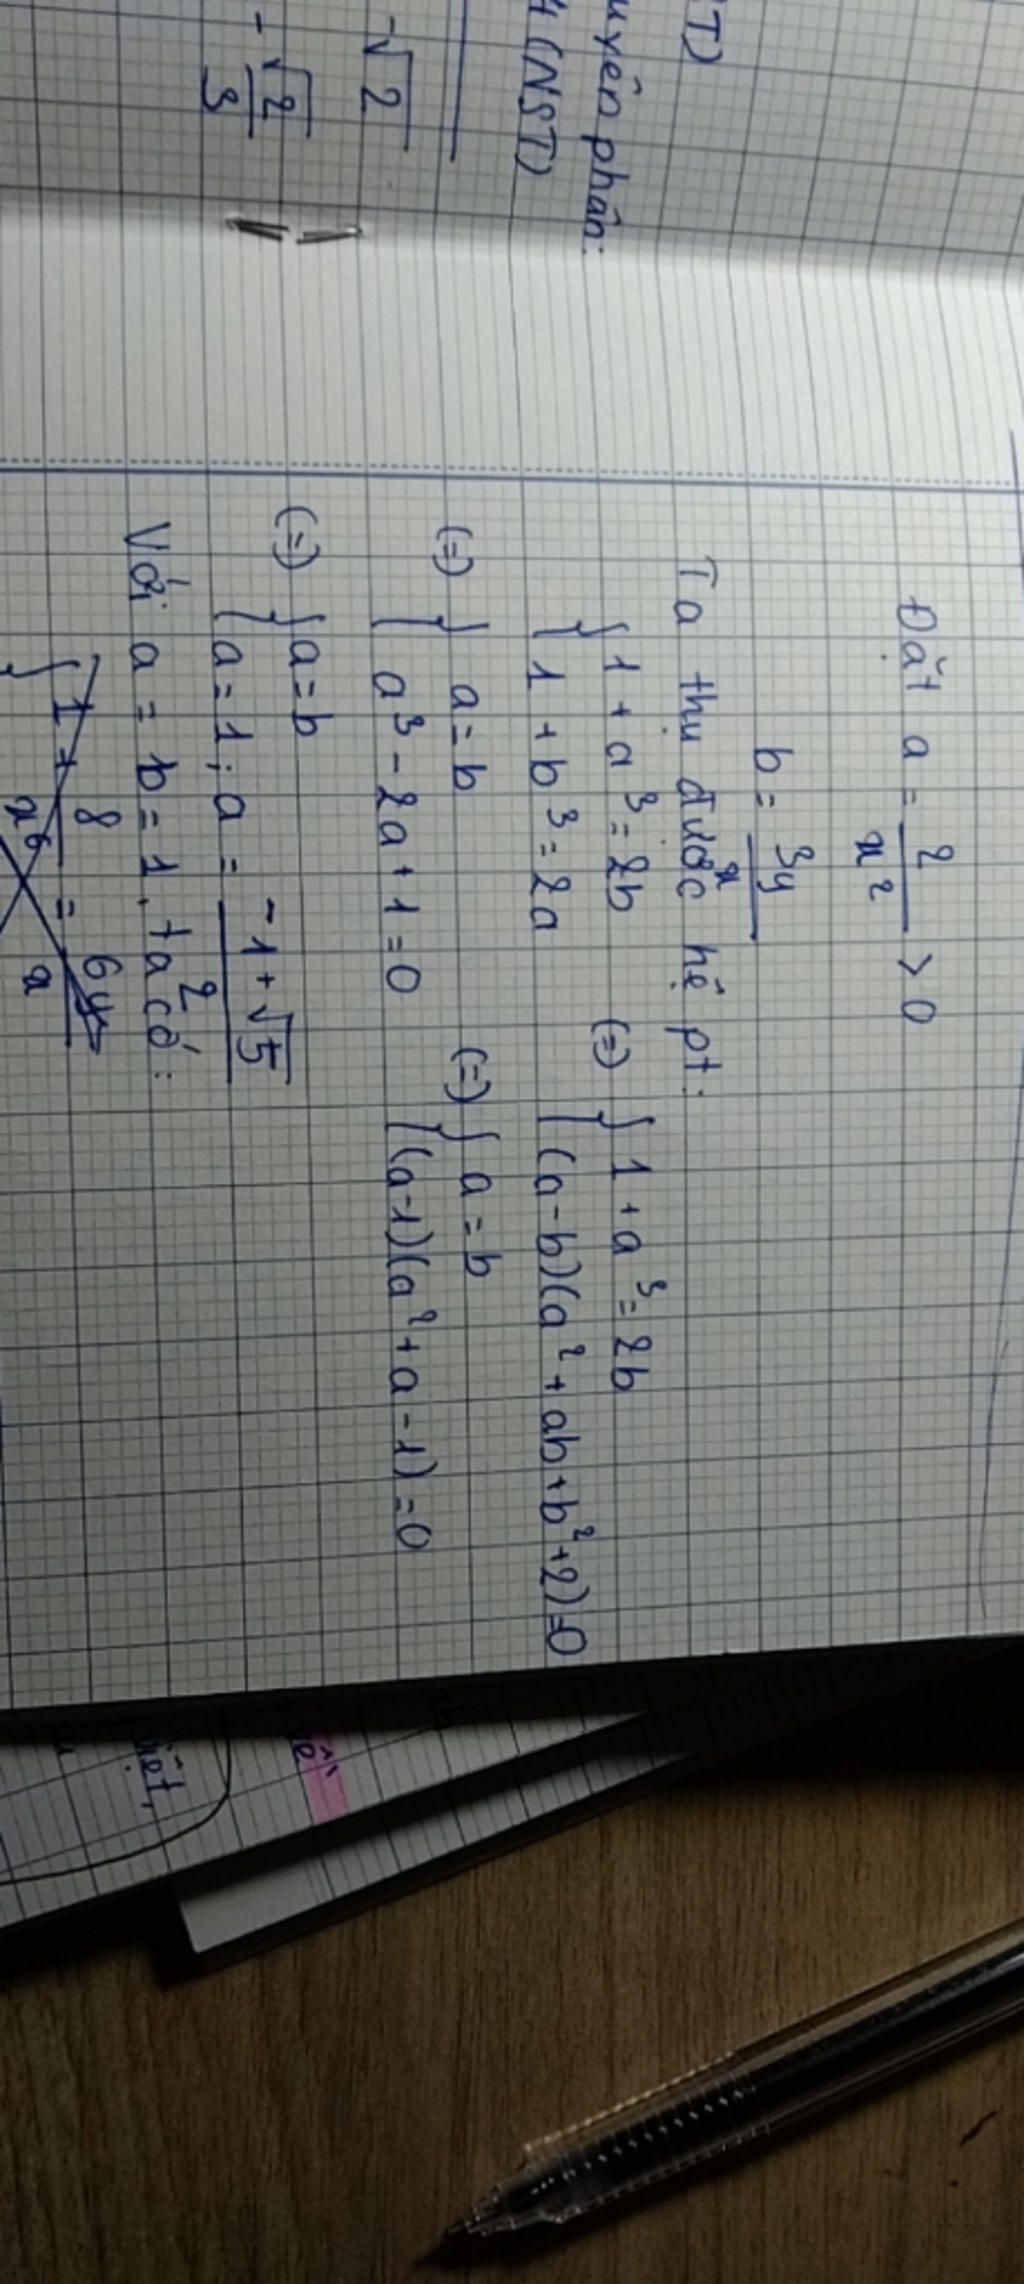 T)
uyên phân:
4 (NST)
-√2
-√2/3
Đặt a = 2/x² > 0
b = 3y/x
Ta thụ được hệ pt:
{ 1 + a³ = 2b
{ 1 + b³ = 2a
(=) { 1 + a³ = 2b
{ (a-b)(a² + ab + b² + 2) = 0
(=) { a = b
{ a³ - 2a + 1 = 0
(=) { a = b
{ (a-1)(a² + a - 1) = 0
(=) { a = b
{ a = 1; a = (-1 + √5)/2
Với a = b = 1, ta có:
{ 1 + 8/x⁶ = 6y/x
iệt,